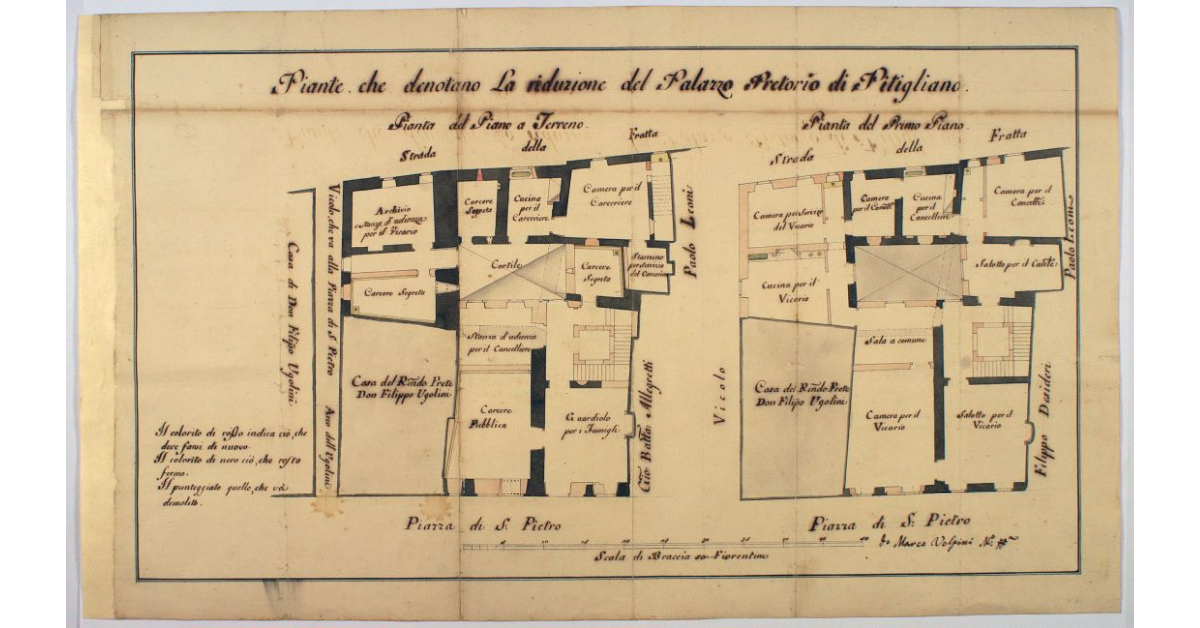 Piante che denotano La riduzione del Palazzo Pretorio di Pitigliano.
Pianta del Piano a Terreno.
Strada
della
Fratta
Archivio
e stanza d'udienza
per il Vicario
Carcere
Segreto
Cucina
per il
Carceriere
Camera per il
Carceriere
Cortile
Carcere
Segreto
Carcere Segreto
Stanza d'udienza
per il Cancelliere
Casa del Rṁdo Prete
Don Filippo Ugolini
Carcere
Pubblica
Guardiolo
per i Famigli
Casa di Don Filipo Ugolini
Vicolo, che va alla Piazza di S. Pietro
Paolo Leoni
Gio Batta Allegretti
Piazza di S. Pietro
Pianta del Primo Piano.
Strada
della
Fratta
Camera per servizo
del Vicario
Camera
Cucina
per il
Cancelliere
Camera per il
Cancelle.
Salotto per il Canle:
Cucina per il
Vicario
Sala a comune
Casa del Rṁdo Prete
Don Filipo Ugolini
Camera per il
Vicario
Salotto per il
Vicario
Vicolo
Paolo Leoni
Filippo Desideri
Piazza di S. Pietro
Il colorito di rosso indica ciò, che
deve farsi di nuovo.
Il colorito di nero ciò, che resta
fermo.
Il punteggiato quello, che và
demolito.
Scala di Braccia 50 Fiorentine
Marco Volpini